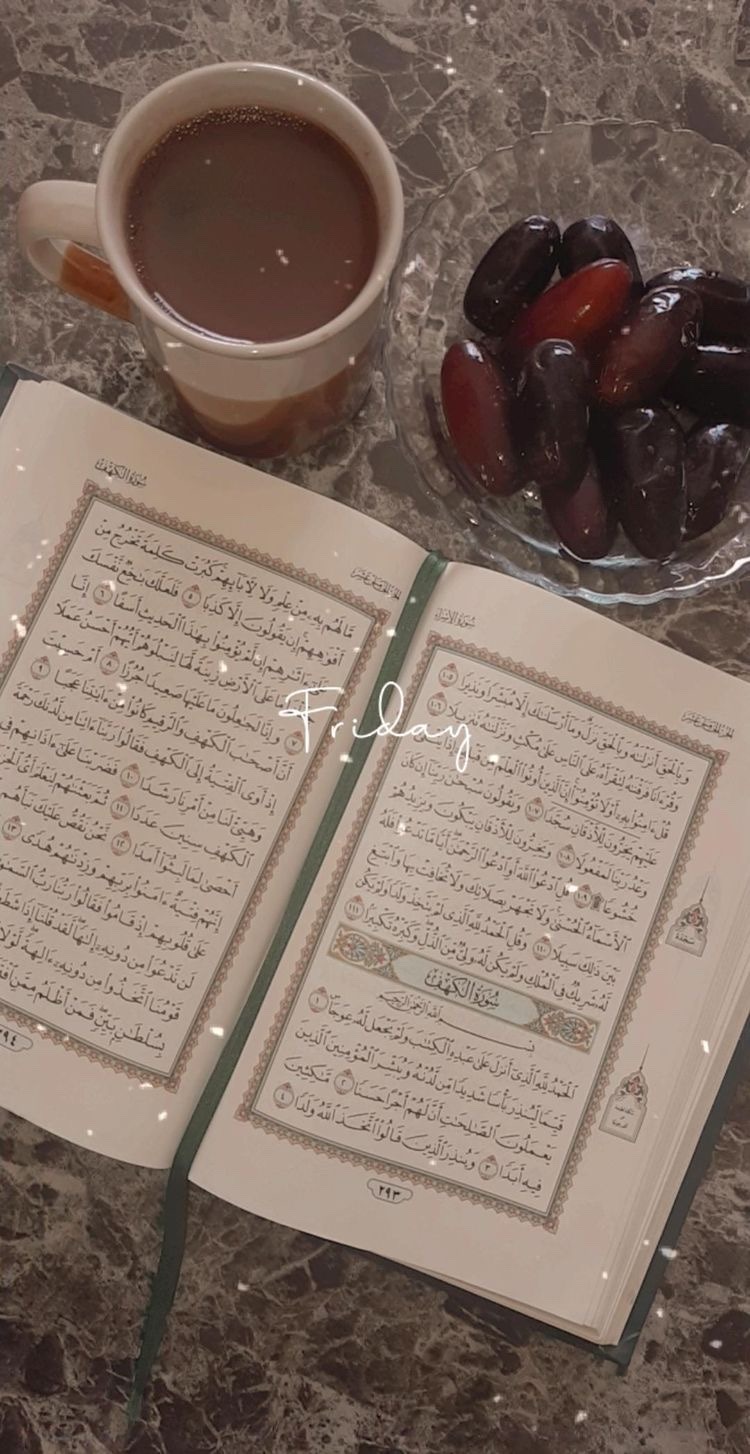 Friday
سُورَةُ الإِسْرَاءِ
الجُزْءُ الخَامِسَ عَشَرَ
وَبِٱلْحَقِّ أَنزَلْنَٰهُ وَبِٱلْحَقِّ نَزَلَۗ وَمَآ أَرْسَلْنَٰكَ إِلَّا مُبَشِّرًا وَنَذِيرًا ١٠٥
وَقُرْءَانًا فَرَقْنَٰهُ لِتَقْرَأَهُۥ عَلَى ٱلنَّاسِ عَلَىٰ مُكْثٍ وَنَزَّلْنَٰهُ تَنزِيلًا ١٠٦
قُلْ ءَامِنُوا۟ بِهِۦٓ أَوْ لَا تُؤْمِنُوٓا۟ۚ إِنَّ ٱلَّذِينَ أُوتُوا۟ ٱلْعِلْمَ مِن قَبْلِهِۦٓ إِذَا يُتْلَىٰ
عَلَيْهِمْ يَخِرُّونَ لِلْأَذْقَانِ سُجَّدًا ١٠٧ وَيَقُولُونَ سُبْحَٰنَ رَبِّنَآ إِن كَانَ
وَعْدُ رَبِّنَا لَمَفْعُولًا ١٠٨ وَيَخِرُّونَ لِلْأَذْقَانِ يَبْكُونَ وَيَزِيدُهُمْ
خُشُوعًا۩ ١٠٩ قُلِ ٱدْعُوا۟ ٱللَّهَ أَوِ ٱدْعُوا۟ ٱلرَّحْمَٰنَۖ أَيًّا مَّا تَدْعُوا۟ فَلَهُ
ٱلْأَسْمَآءُ ٱلْحُسْنَىٰۚ وَلَا تَجْهَرْ بِصَلَاتِكَ وَلَا تُخَافِتْ بِهَا وَٱبْتَغِ
بَيْنَ ذَٰلِكَ سَبِيلًا ١١٠ وَقُلِ ٱلْحَمْدُ لِلَّهِ ٱلَّذِى لَمْ يَتَّخِذْ وَلَدًا وَلَمْ يَكُن
لَّهُۥ شَرِيكٌ فِى ٱلْمُلْكِ وَلَمْ يَكُن لَّهُۥ وَلِىٌّ مِّنَ ٱلذُّلِّۖ وَكَبِّرْهُ تَكْبِيرًۢا ١١١
سُورَةُ الكَهْفِ
بِسْمِ ٱللَّهِ ٱلرَّحْمَٰنِ ٱلرَّحِيمِ
ٱلْحَمْدُ لِلَّهِ ٱلَّذِىٓ أَنزَلَ عَلَىٰ عَبْدِهِ ٱلْكِتَٰبَ وَلَمْ يَجْعَل لَّهُۥ عِوَجَاۜ ١
قَيِّمًا لِّيُنذِرَ بَأْسًا شَدِيدًا مِّن لَّدُنْهُ وَيُبَشِّرَ ٱلْمُؤْمِنِينَ ٱلَّذِينَ
يَعْمَلُونَ ٱلصَّٰلِحَٰتِ أَنَّ لَهُمْ أَجْرًا حَسَنًا ٢ مَّٰكِثِينَ
فِيهِ أَبَدًا ٣ وَيُنذِرَ ٱلَّذِينَ قَالُوا۟ ٱتَّخَذَ ٱللَّهُ وَلَدًا ٤
سَجْدَة
٢٩٣
سُورَةُ الكَهْفِ
الجُزْءُ الخَامِسَ عَشَرَ
مَّا لَهُم بِهِۦ مِنْ عِلْمٍ وَلَا لِءَابَآئِهِمْۚ كَبُرَتْ كَلِمَةً تَخْرُجُ مِنْ
أَفْوَٰهِهِمْۚ إِن يَقُولُونَ إِلَّا كَذِبًا ٥ فَلَعَلَّكَ بَٰخِعٌ نَّفْسَكَ
عَلَىٰٓ ءَاثَٰرِهِمْ إِن لَّمْ يُؤْمِنُوا۟ بِهَٰذَا ٱلْحَدِيثِ أَسَفًا ٦ إِنَّا
جَعَلْنَا مَا عَلَى ٱلْأَرْضِ زِينَةً لَّهَا لِنَبْلُوَهُمْ أَيُّهُمْ أَحْسَنُ عَمَلًا
٧ وَإِنَّا لَجَٰعِلُونَ مَا عَلَيْهَا صَعِيدًا جُرُزًا ٨ أَمْ حَسِبْتَ
أَنَّ أَصْحَٰبَ ٱلْكَهْفِ وَٱلرَّقِيمِ كَانُوا۟ مِنْ ءَايَٰتِنَا عَجَبًا ٩
إِذْ أَوَى ٱلْفِتْيَةُ إِلَى ٱلْكَهْفِ فَقَالُوا۟ رَبَّنَآ ءَاتِنَا مِن لَّدُنكَ رَحْمَةً
وَهَيِّئْ لَنَا مِنْ أَمْرِنَا رَشَدًا ١٠ فَضَرَبْنَا عَلَىٰٓ ءَاذَانِهِمْ فِى
ٱلْكَهْفِ سِنِينَ عَدَدًا ١١ ثُمَّ بَعَثْنَٰهُمْ لِنَعْلَمَ أَىُّ
أَحْصَىٰ لِمَا لَبِثُوٓا۟ أَمَدًا ١٢ نَّحْنُ نَقُصُّ عَلَيْكَ نَبَأَهُم
إِنَّهُمْ فِتْيَةٌ ءَامَنُوا۟ بِرَبِّهِمْ وَزِدْنَٰهُمْ هُدًى ١٣
عَلَىٰ قُلُوبِهِمْ إِذْ قَامُوا۟ فَقَالُوا۟ رَبُّنَا رَبُّ
لَن نَّدْعُوَا۟ مِن دُونِهِۦٓ إِلَٰهًاۖ لَّقَدْ قُلْنَآ إِذًا
قَوْمُنَا ٱتَّخَذُوا۟ مِن دُونِهِۦٓ ءَالِهَةًۖ لَّوْلَا
بِسُلْطَٰنٍۭ بَيِّنٍۖ فَمَنْ أَظْلَمُ مِمَّنِ
٢٩٤